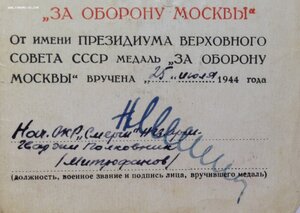 „ЗА ОБОРОНУ МОСКВЫ“
ОТ ИМЕНИ ПРЕЗИДИУМА ВЕРХОВНОГО
СОВЕТА СССР МЕДАЛЬ „ЗА ОБОРОНУ
МОСКВЫ“ ВРУЧЕНА „25“ июля 1944 года
Нач. ОКР „Смерш“
Гвардии Полковник
/Митрофанов/
(должность, военное звание и подпись лица, вручившего медаль)